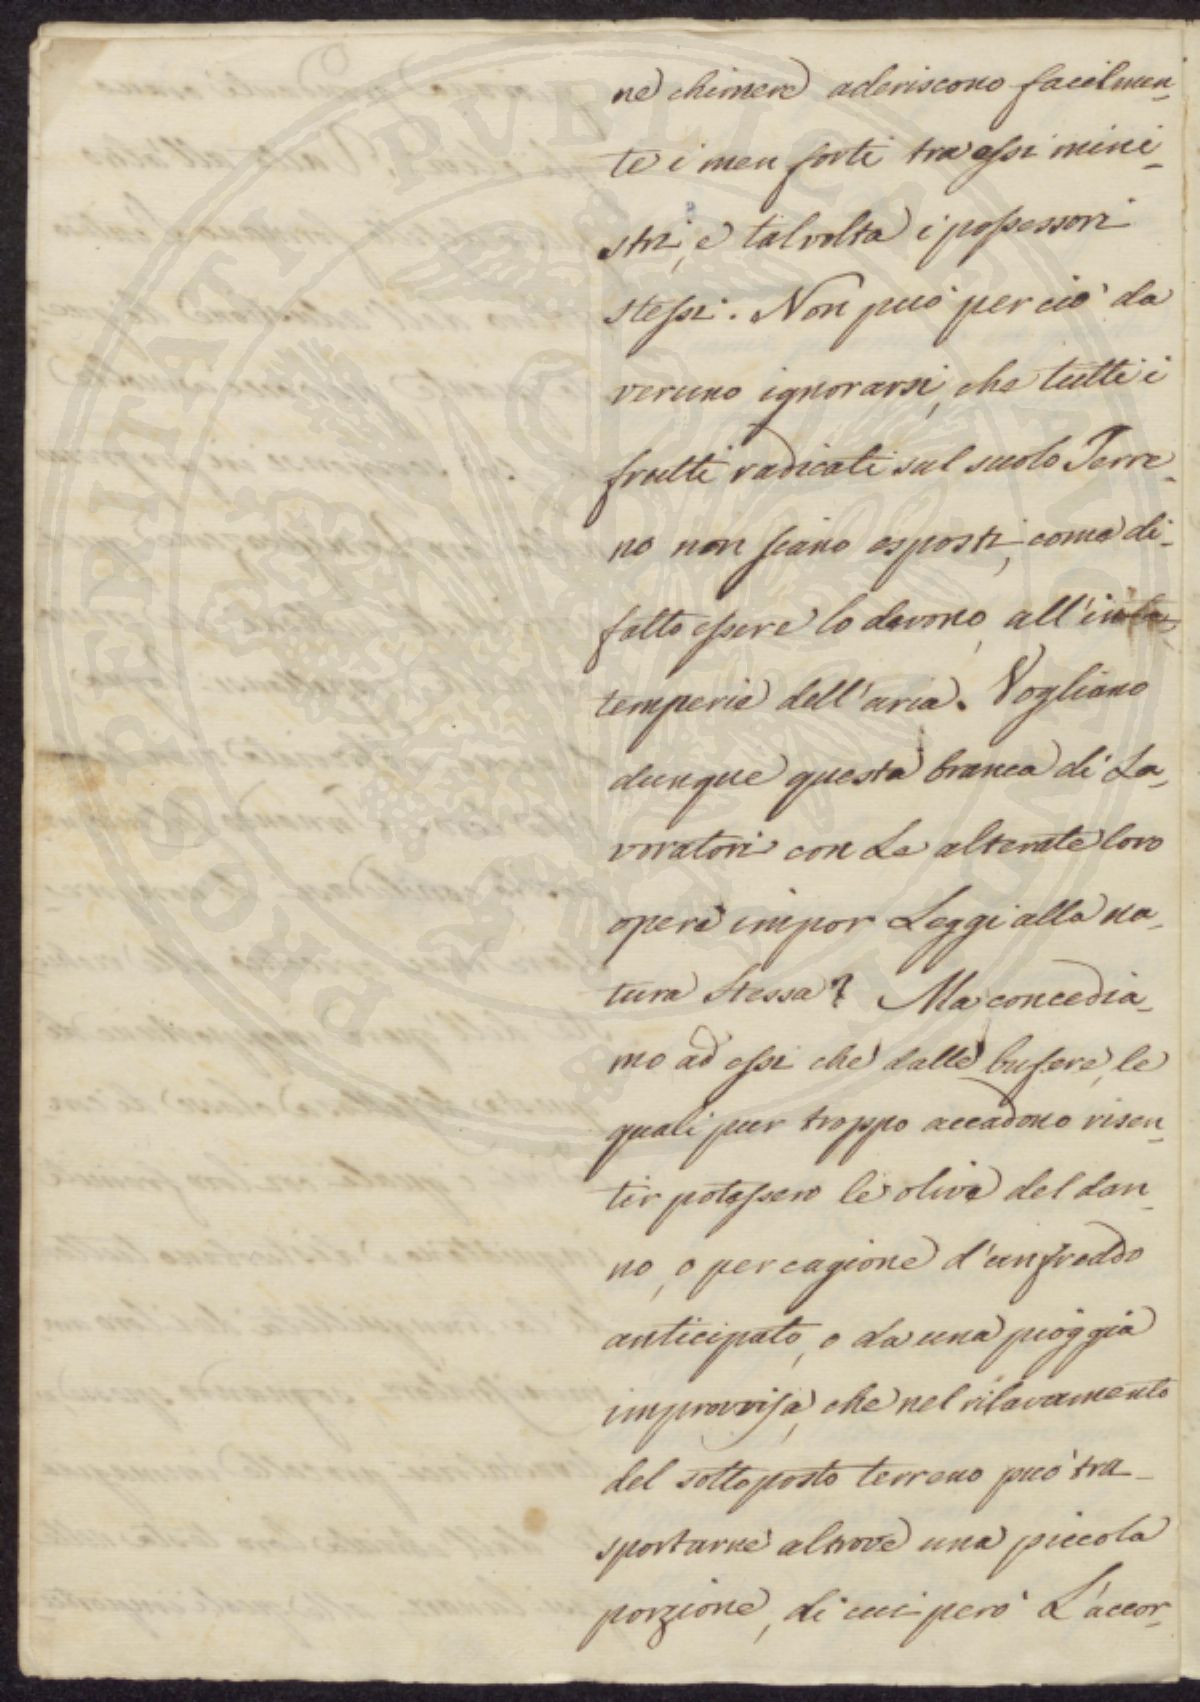 ne chimere aderiscono facilmen-
te i men forti tra essi mini-
stri, e talvolta i possessori
stessi. Non può per ciò da
veruno ignorarsi, che tutti i
frutti radicati sul suolo Terre-
no non siano esposti, come di-
fatto essere lo devono, all'in
temperie dell'aria. Vogliano
dunque questa branca di La-
voratori con Le alterate loro
opere impor Leggi alla na-
tura Stessa? Ma concedia-
mo ad essi che dalle bufere, le
quali pur troppo accadono risen-
tir potessero le olive del dan-
no, o per cagione d'un freddo
anticipato, o da una pioggia
improvvisa, che nel rilavamento
del sottoposto terreno può tra-
sportarne altrove una piccola
porzione, di cui però L'accor-
PROSPERITATI PUBLICAE AUGENDAE